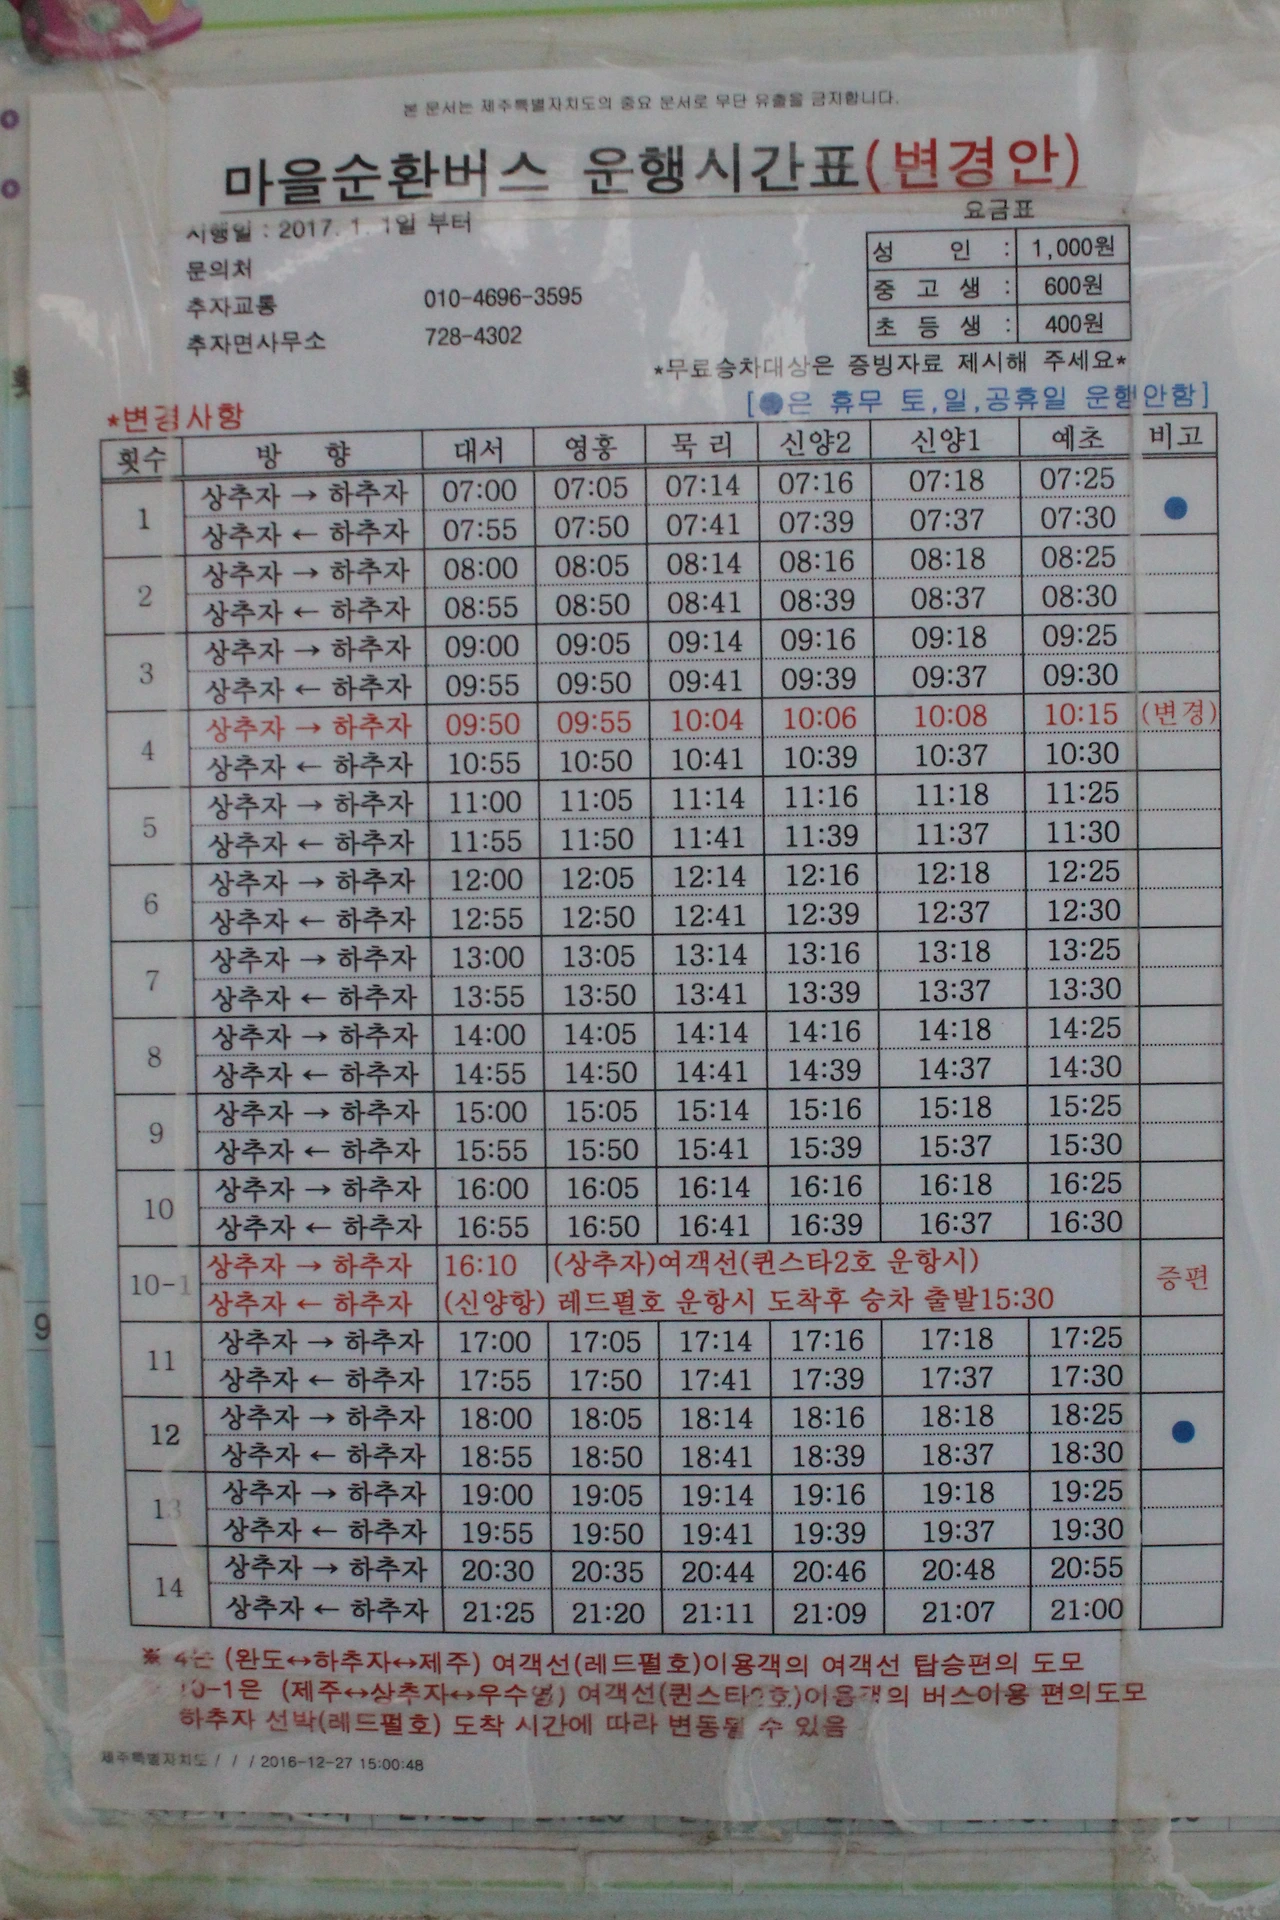 본 문서는 제주특별자치도의 중요 문서로 무단 유출을 금지합니다.
마을순환버스 운행시간표(변경안)
시행일 : 2017. 1. 1일 부터
요금표
성 인 : 1,000원
중 고 생 : 600원
초 등 생 : 400원
문의처
추자교통 010-4696-3595
추자면사무소 728-4302
*무료승차대상은 증빙자료 제시해 주세요*
*변경사항
[●은 휴무 토,일,공휴일 운행안함]
횟수 방 향 대서 영흥 묵 리 신양2 신양1 예초 비고
1 상추자 → 하추자 07:00 07:05 07:14 07:16 07:18 07:25 ●
상추자 ← 하추자 07:55 07:50 07:41 07:39 07:37 07:30
2 상추자 → 하추자 08:00 08:05 08:14 08:16 08:18 08:25
상추자 ← 하추자 08:55 08:50 08:41 08:39 08:37 08:30
3 상추자 → 하추자 09:00 09:05 09:14 09:16 09:18 09:25
상추자 ← 하추자 09:55 09:50 09:41 09:39 09:37 09:30
4 상추자 → 하추자 09:50 09:55 10:04 10:06 10:08 10:15 (변경)
상추자 ← 하추자 10:55 10:50 10:41 10:39 10:37 10:30
5 상추자 → 하추자 11:00 11:05 11:14 11:16 11:18 11:25
상추자 ← 하추자 11:55 11:50 11:41 11:39 11:37 11:30
6 상추자 → 하추자 12:00 12:05 12:14 12:16 12:18 12:25
상추자 ← 하추자 12:55 12:50 12:41 12:39 12:37 12:30
7 상추자 → 하추자 13:00 13:05 13:14 13:16 13:18 13:25
상추자 ← 하추자 13:55 13:50 13:41 13:39 13:37 13:30
8 상추자 → 하추자 14:00 14:05 14:14 14:16 14:18 14:25
상추자 ← 하추자 14:55 14:50 14:41 14:39 14:37 14:30
9 상추자 → 하추자 15:00 15:05 15:14 15:16 15:18 15:25
상추자 ← 하추자 15:55 15:50 15:41 15:39 15:37 15:30
10 상추자 → 하추자 16:00 16:05 16:14 16:16 16:18 16:25
상추자 ← 하추자 16:55 16:50 16:41 16:39 16:37 16:30
10-1 상추자 → 하추자 16:10 (상추자)여객선(퀸스타2호 운항시) 증편
상추자 ← 하추자 (신양항) 레드펄호 운항시 도착후 승차 출발15:30
11 상추자 → 하추자 17:00 17:05 17:14 17:16 17:18 17:25
상추자 ← 하추자 17:55 17:50 17:41 17:39 17:37 17:30
12 상추자 → 하추자 18:00 18:05 18:14 18:16 18:18 18:25 ●
상추자 ← 하추자 18:55 18:50 18:41 18:39 18:37 18:30
13 상추자 → 하추자 19:00 19:05 19:14 19:16 19:18 19:25
상추자 ← 하추자 19:55 19:50 19:41 19:39 19:37 19:30
14 상추자 → 하추자 20:30 20:35 20:44 20:46 20:48 20:55
상추자 ← 하추자 21:25 21:20 21:11 21:09 21:07 21:00
※ 4는 (완도↔하추자↔제주) 여객선(레드펄호)이용객의 여객선 탑승편의 도모
10-1은 (제주↔상추자↔우수영) 여객선(퀸스타2호)이용객의 버스이용 편의도모
하추자 선박(레드펄호) 도착 시간에 따라 변동될 수 있음
제주특별자치도 / / / 2016-12-27 15:00:48
9